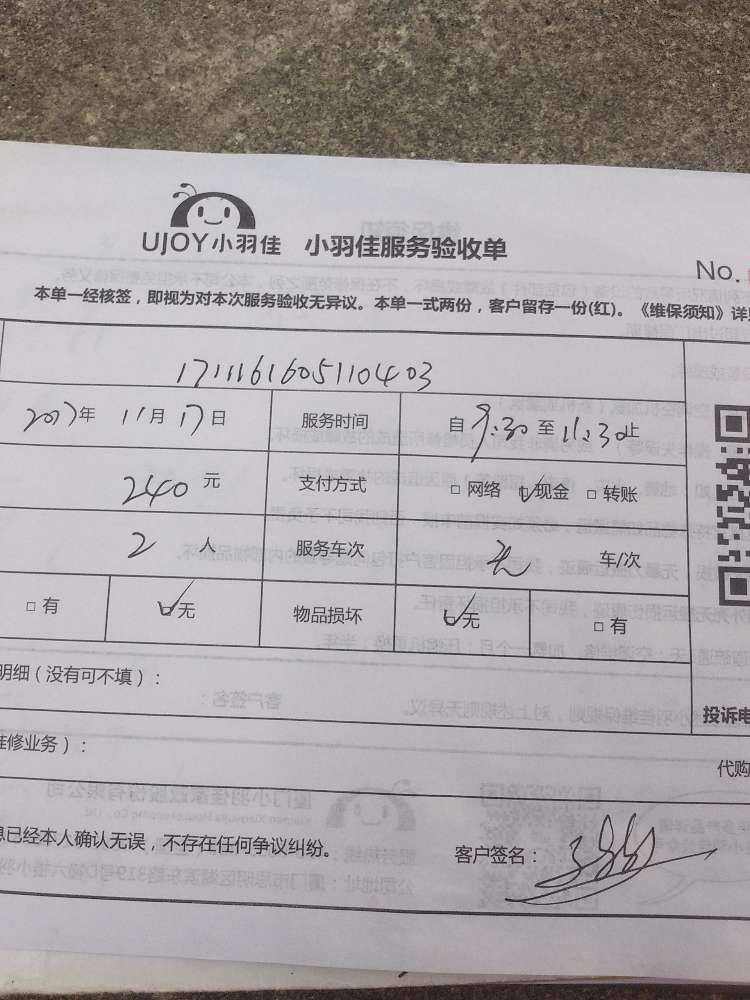 UJOY小羽佳 小羽佳服务验收单
No.
本单一经核签，即视为对本次服务验收无异议。本单一式两份，客户留存一份(红)。《维保须知》详
1711161605110403
2017年 11月 17日 服务时间 自 9:30 至 11:30止
240 元 支付方式 □网络 ☑现金 □转账
2 人 服务车次 无 车/次
□有 ☑无 物品损坏 ☑无 □有
明细（没有可不填）：
投诉电
维修业务）：
代购
息已经本人确认无误，不存在任何争议纠纷。 客户签名：